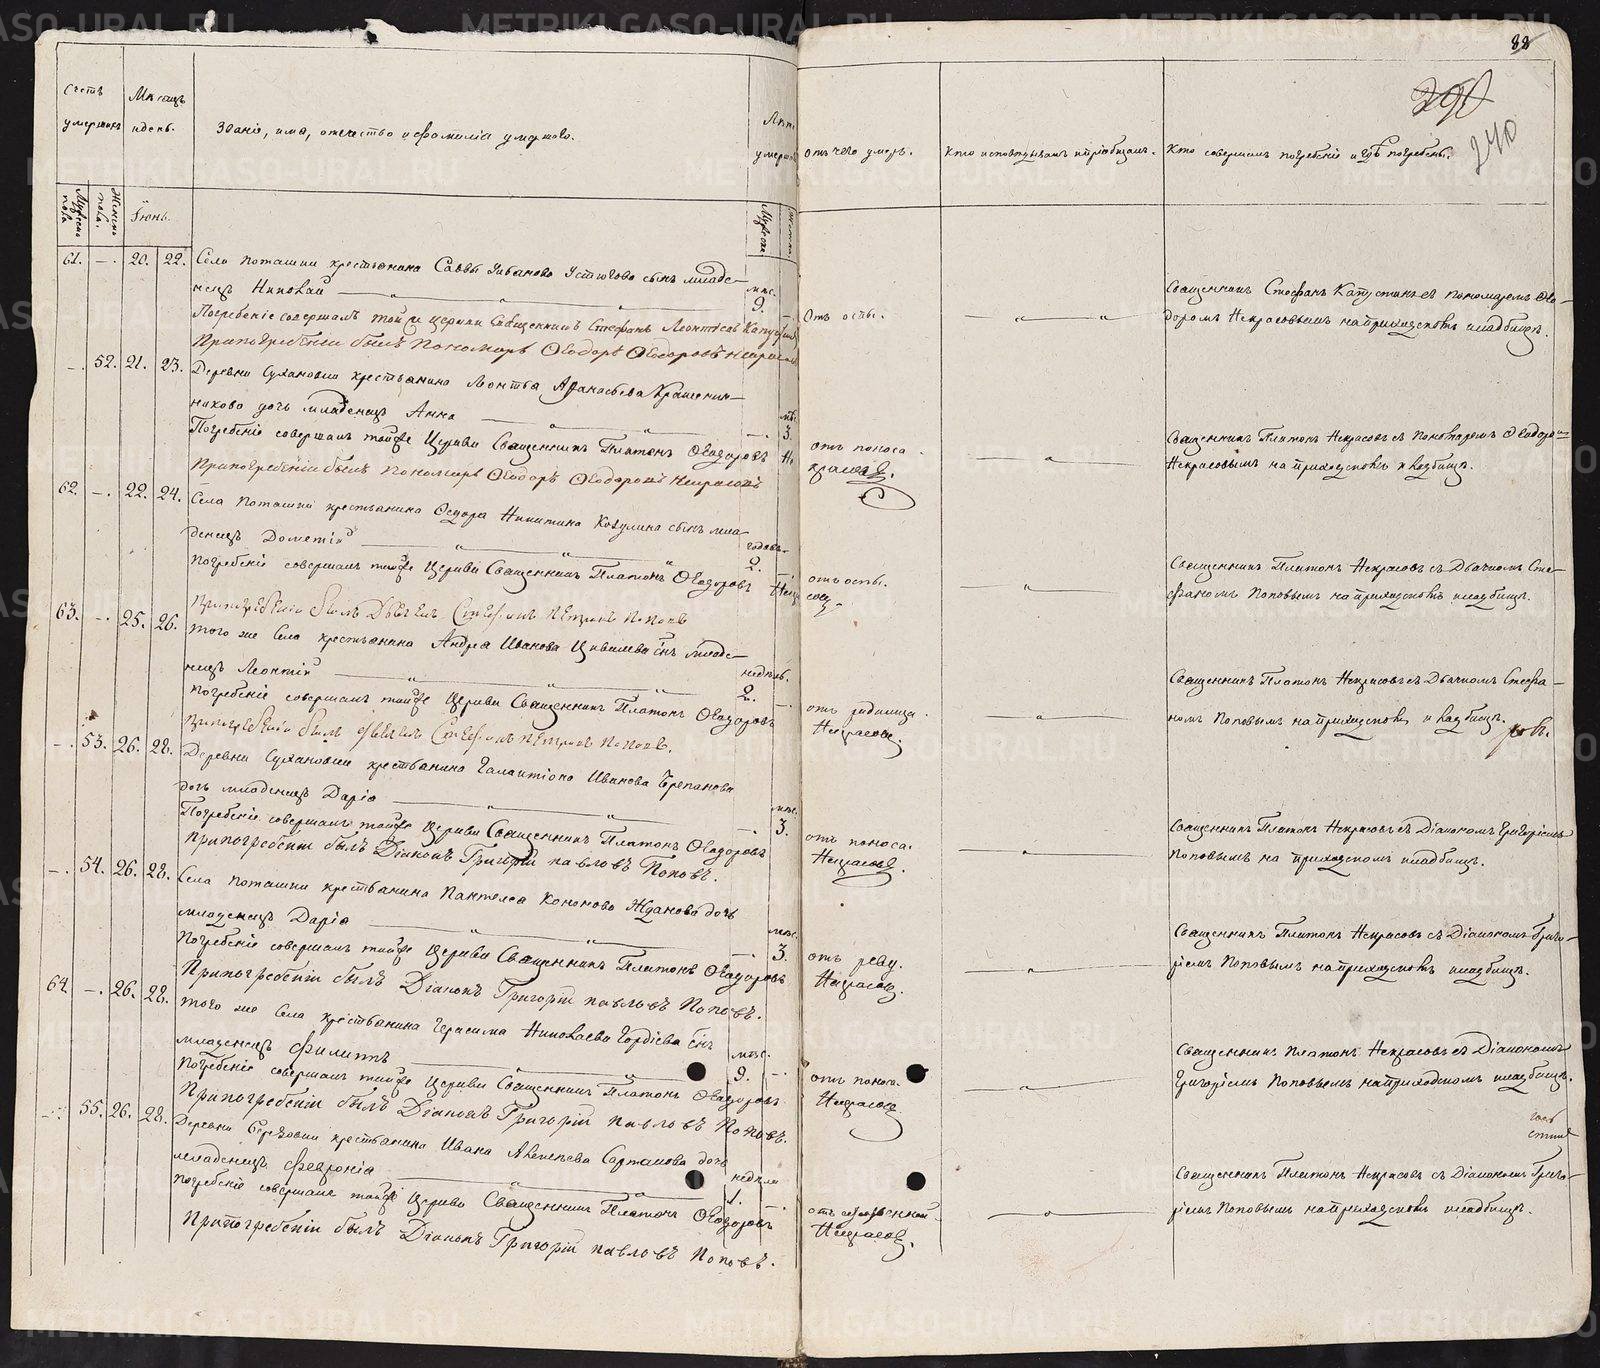 88
290
240
Счетъ умершихъ
Мѣсяцъ и день.
Званіе, имя, отечество и фамилія умершаго.
Лѣта умершаго
отъ чего умеръ.
Кто исповѣдывалъ и пріобщалъ.
Кто совершалъ погребеніе и гдѣ погребены.
Мужеска пола
Женска пола.
Іюнь.
61. —. 20. 22. Села Поташки крестьянина Саввы Устюгова сынъ младе-
нецъ Николай
мѣс. 9.
Погребеніе совершалъ той же церкви Священникъ Стефанъ Леонтіевъ Капустинъ
При погребеніи былъ Пономарь Ѳеодоръ Ѳеодоровъ Некрасовъ
Отъ оспы.
Священникъ Стефанъ Капустинъ съ пономаремъ Ѳео-
доромъ Некрасовымъ на приходскомъ кладбищѣ.
—. 52. 21. 23. Деревни Сухановки крестьянина Леонтья Аѳанасьева Крашенин-
никова дочь младенецъ Анна
мѣс. 3.
Погребеніе совершалъ тойже Церкви Священникъ Платонъ Ѳеодоровъ Не
красовъ.
При погребеніи былъ Пономарь Ѳеодоръ Ѳеодоровъ Некрасовъ
отъ поноса.
Священникъ Платонъ Некрасовъ съ Пономаремъ Ѳеодоромъ
Некрасовымъ на приходскомъ кладбищѣ.
62. —. 22. 24. Села Поташки крестьянина Ѳедора Никитина Козулина сынъ мла-
денецъ Дометій
годовъ 2.
Погребеніе совершалъ тойже Церкви Священникъ Платонъ Ѳеодоровъ Некра
совъ
При погребеніи былъ Дьячекъ Стефанъ Петровъ Поповъ
отъ оспы.
Священникъ Платонъ Некрасовъ съ Дьячкомъ Сте-
фаномъ Поповымъ на приходскомъ кладбищѣ.
63. —. 25. 26. Того же Села крестьянина Андрея Иванова Цивилева сынъ младе-
нецъ Леонтій
недѣль. 2.
Погребеніе совершалъ тойже Церкви Священникъ Платонъ Ѳеодоровъ
Некрасовъ.
При погребеніи былъ Дьячекъ Стефанъ Петровъ Поповъ.
отъ родимца.
Священникъ Платонъ Некрасовъ съ Дьячкомъ Стефа-
номъ Поповымъ на приходскомъ кладбищѣ.
—. 53. 26. 28. Деревни Сухановки крестьянина Галактіона Иванова Черепанова
дочь младенецъ Дарія
мѣс. 3.
Погребеніе совершалъ тойже Церкви Священникъ Платонъ Ѳеодоровъ
Некрасовъ.
При погребеніи былъ Діаконъ Григорій Павловъ Поповъ.
отъ поноса.
Священникъ Платонъ Некрасовъ съ Діакономъ Григоріемъ
Поповымъ на приходскомъ кладбищѣ.
—. 54. 26. 28. Села Поташки крестьянина Пантелея Кононова Жданова дочь
младенецъ Дарія
мѣс. 3.
Погребеніе совершалъ тойже Церкви Священникъ Платонъ Ѳеодоровъ
Некрасовъ.
При погребеніи былъ Діаконъ Григорій Павловъ Поповъ.
отъ реву.
Священникъ Платонъ Некрасовъ съ Діакономъ Григо-
ріемъ Поповымъ на приходскомъ кладбищѣ.
64. —. 26. 28. Того же Села крестьянина Герасима Николаева Гордѣева сынъ
младенецъ Филиппъ
мѣс. 9.
Погребеніе совершалъ тойже Церкви Священникъ Платонъ Ѳеодоровъ
Некрасовъ
При погребеніи былъ Діаконъ Григорій Павловъ Поповъ.
отъ поноса.
Священникъ Платонъ Некрасовъ съ Діакономъ
Григоріемъ Поповымъ на приходскомъ кладбищѣ.
—. 55. 26. 28. Деревни крестьянина Ивана дочь
младенецъ Февронія
недѣли 1.
Погребеніе совершалъ тойже Церкви Священникъ Платонъ Ѳеодоровъ
Некрасовъ.
При погребеніи былъ Діаконъ Григорій Павловъ Поповъ.
Священникъ Платонъ Некрасовъ съ Діакономъ Григо-
ріемъ Поповымъ на приходскомъ кладбищѣ.
METRIKI.GASO-URAL.RU